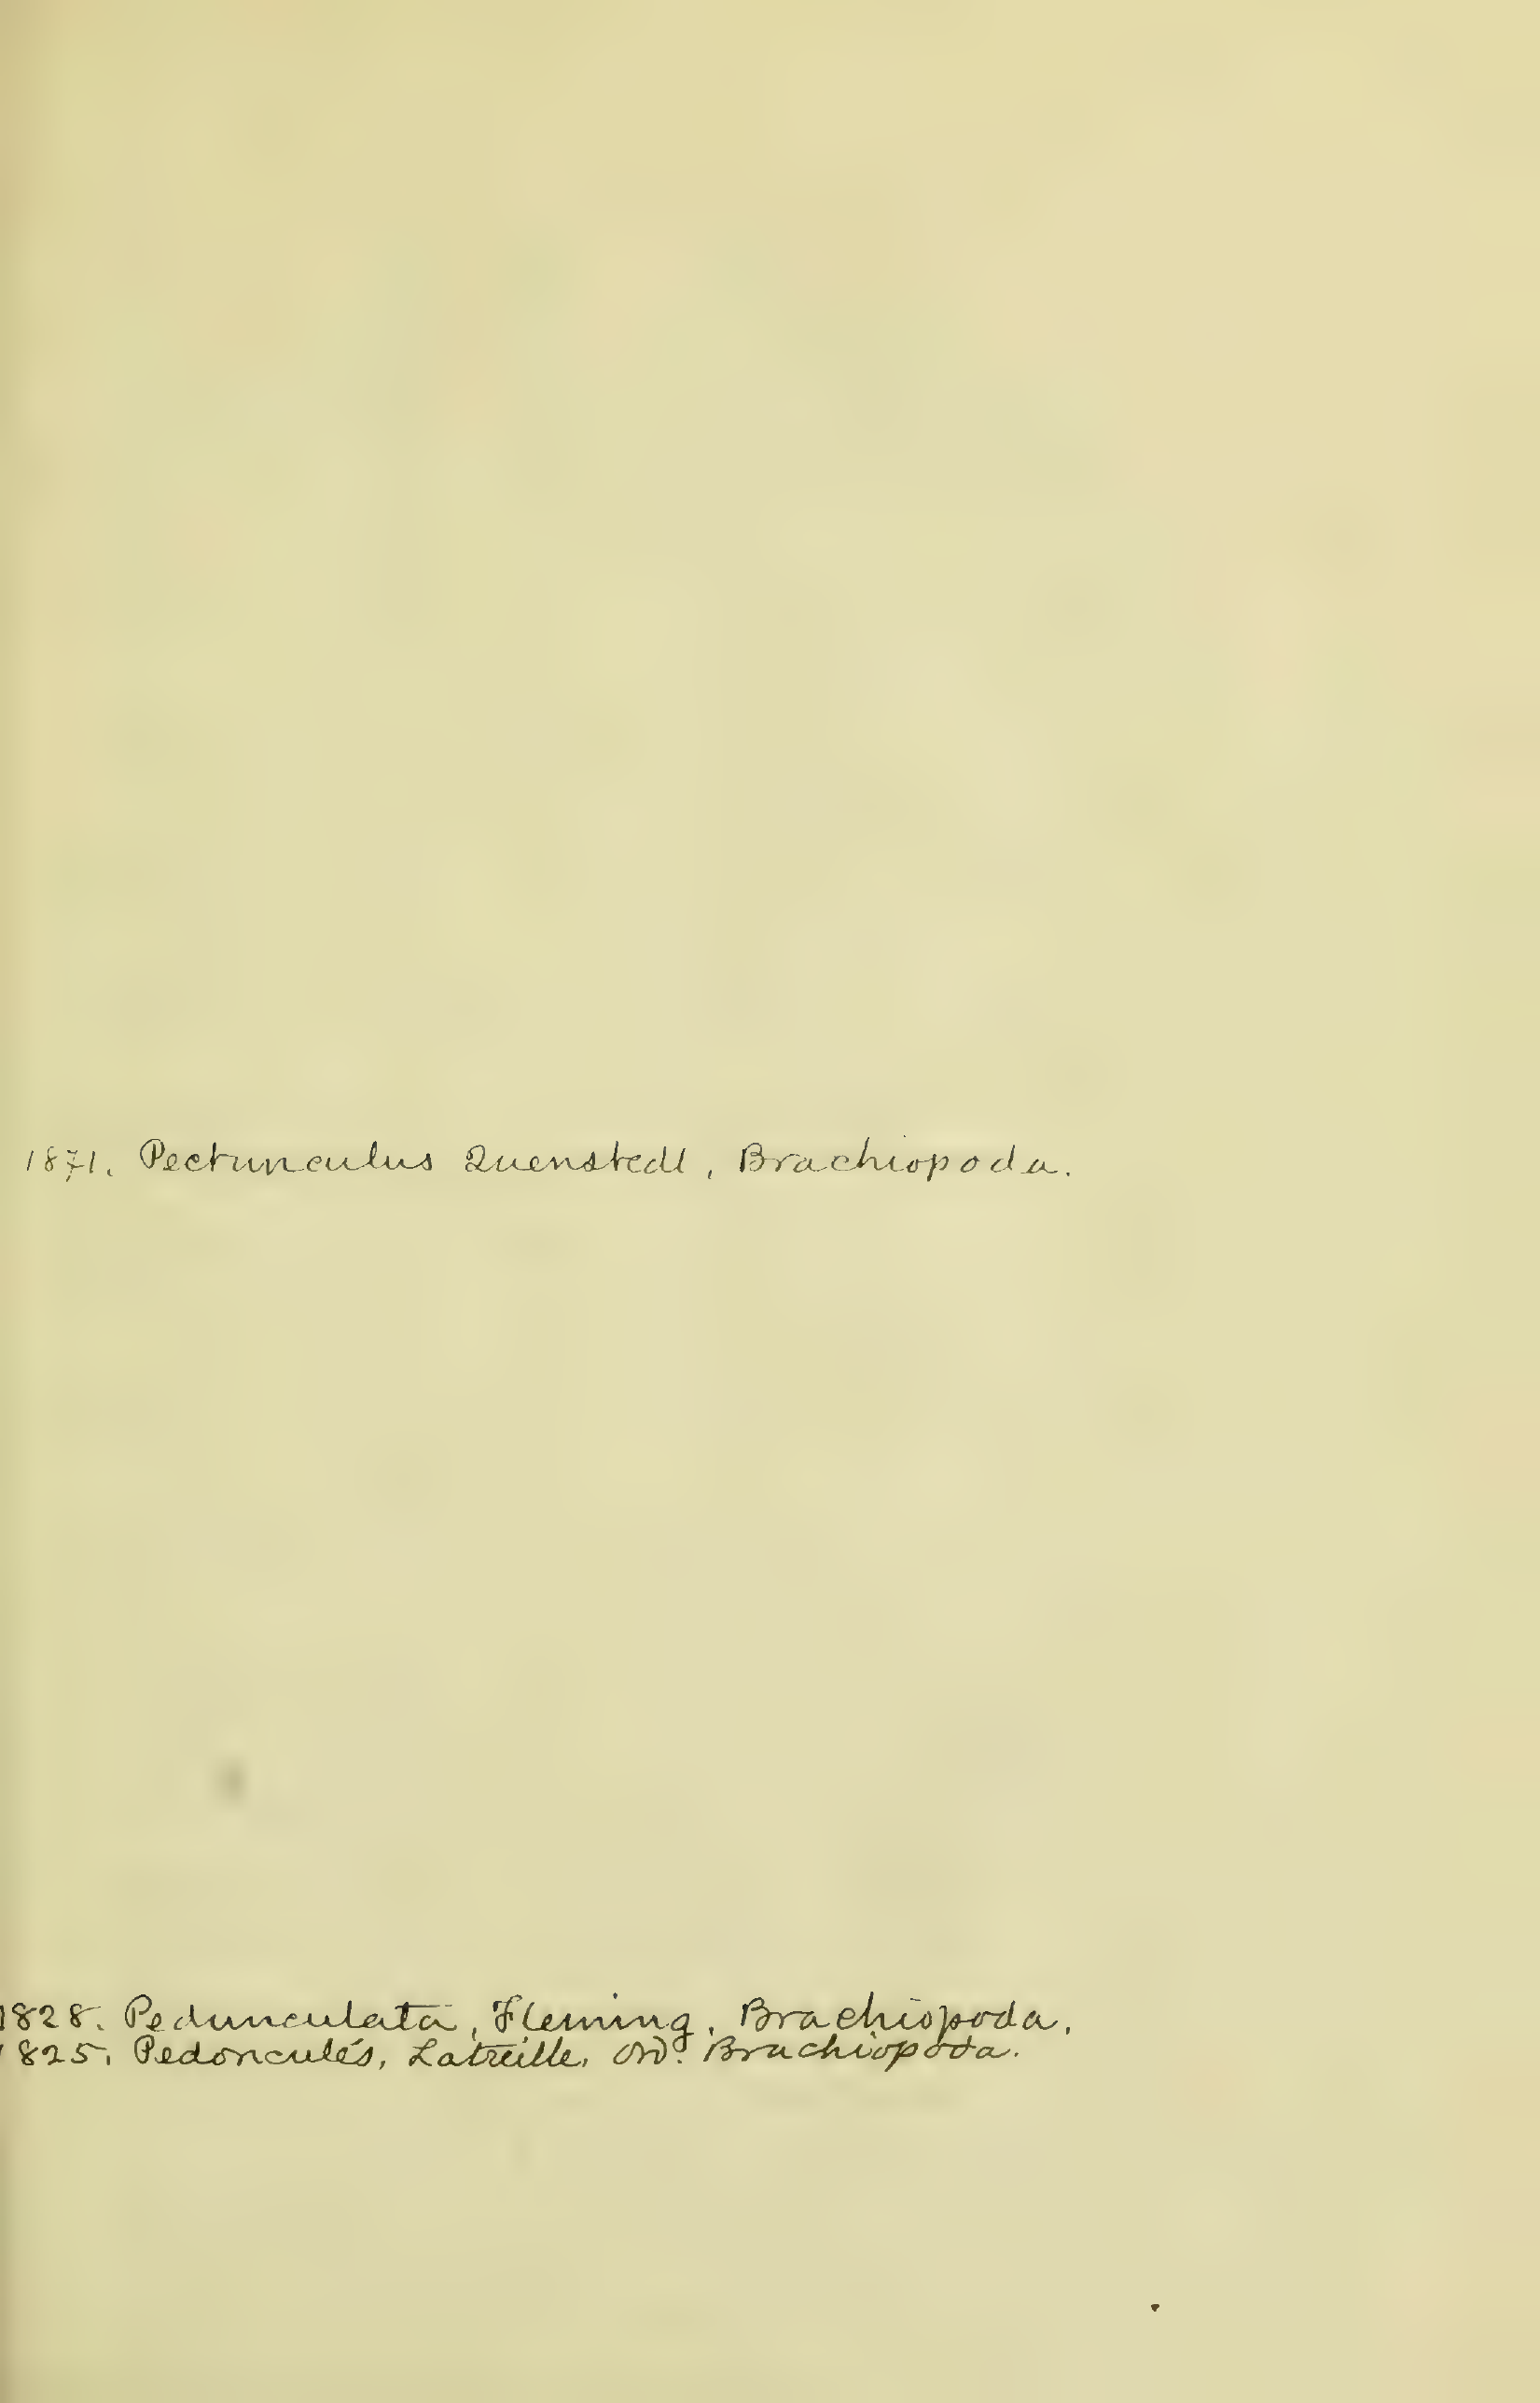 1871. Pectunculus Quenstedt, Brachiopoda.
1828. Pedunculata, Fleming, Brachiopoda.
1825. Pedonculés, Latreille. Ord. Brachiopoda.